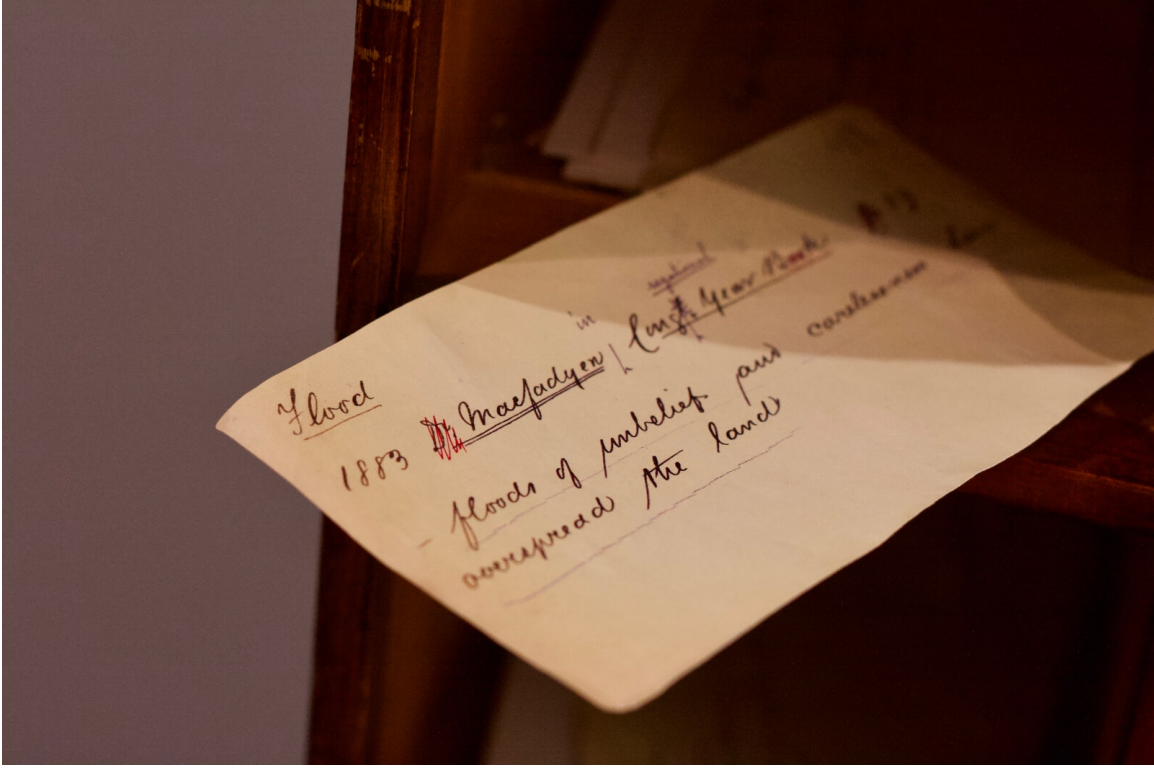 Flood
1883 Macfadyen in Congl Year Book
– floods of unbelief and carelessness have
overspread the land